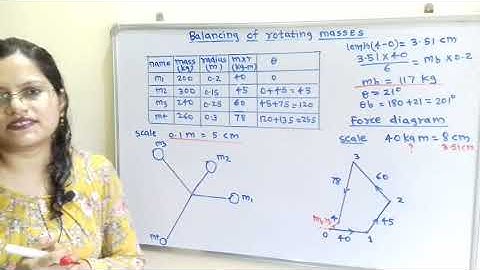 Balancing of rotating masses
name mass (kg) radius (m) mxr (kg-m) θ
m1 200 0.2 40 0
m2 300 0.15 45 0+45=45
m3 240 0.25 60 45+75=120
m4 260 0.3 78 120+135=255
scale 0.1m = 5 cm
m3
m2
m1
m4
length(4-0)= 3.51 cm
3.51 x 40 / 6 = mb x 0.2
mb = 117 kg
θ = 21°
θb = 180+21 = 201°
Force diagram
scale 40 kg m = 8 cm
? 3.51cm
3
78 60
2
4 45
0 40 1